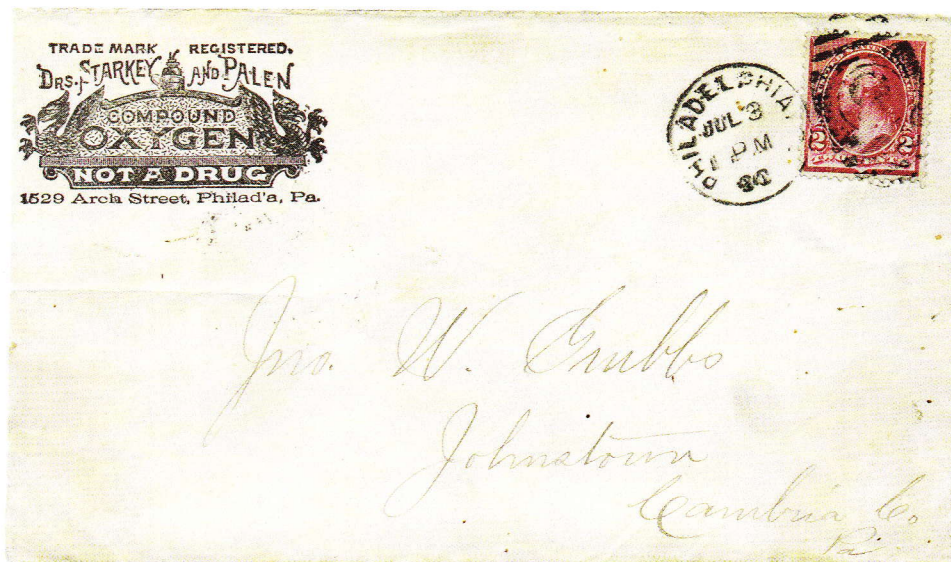 TRADE MARK REGISTERED.
DRS. STARKEY AND PALEN
COMPOUND
OXYGEN
NOT A DRUG
1529 Arch Street, Philad'a, Pa.
PHILADELPHIA,
JUL 3
1 PM
90
2 2
Jno. W. Grubbs
Johnstown
Cambria Co.
Pa